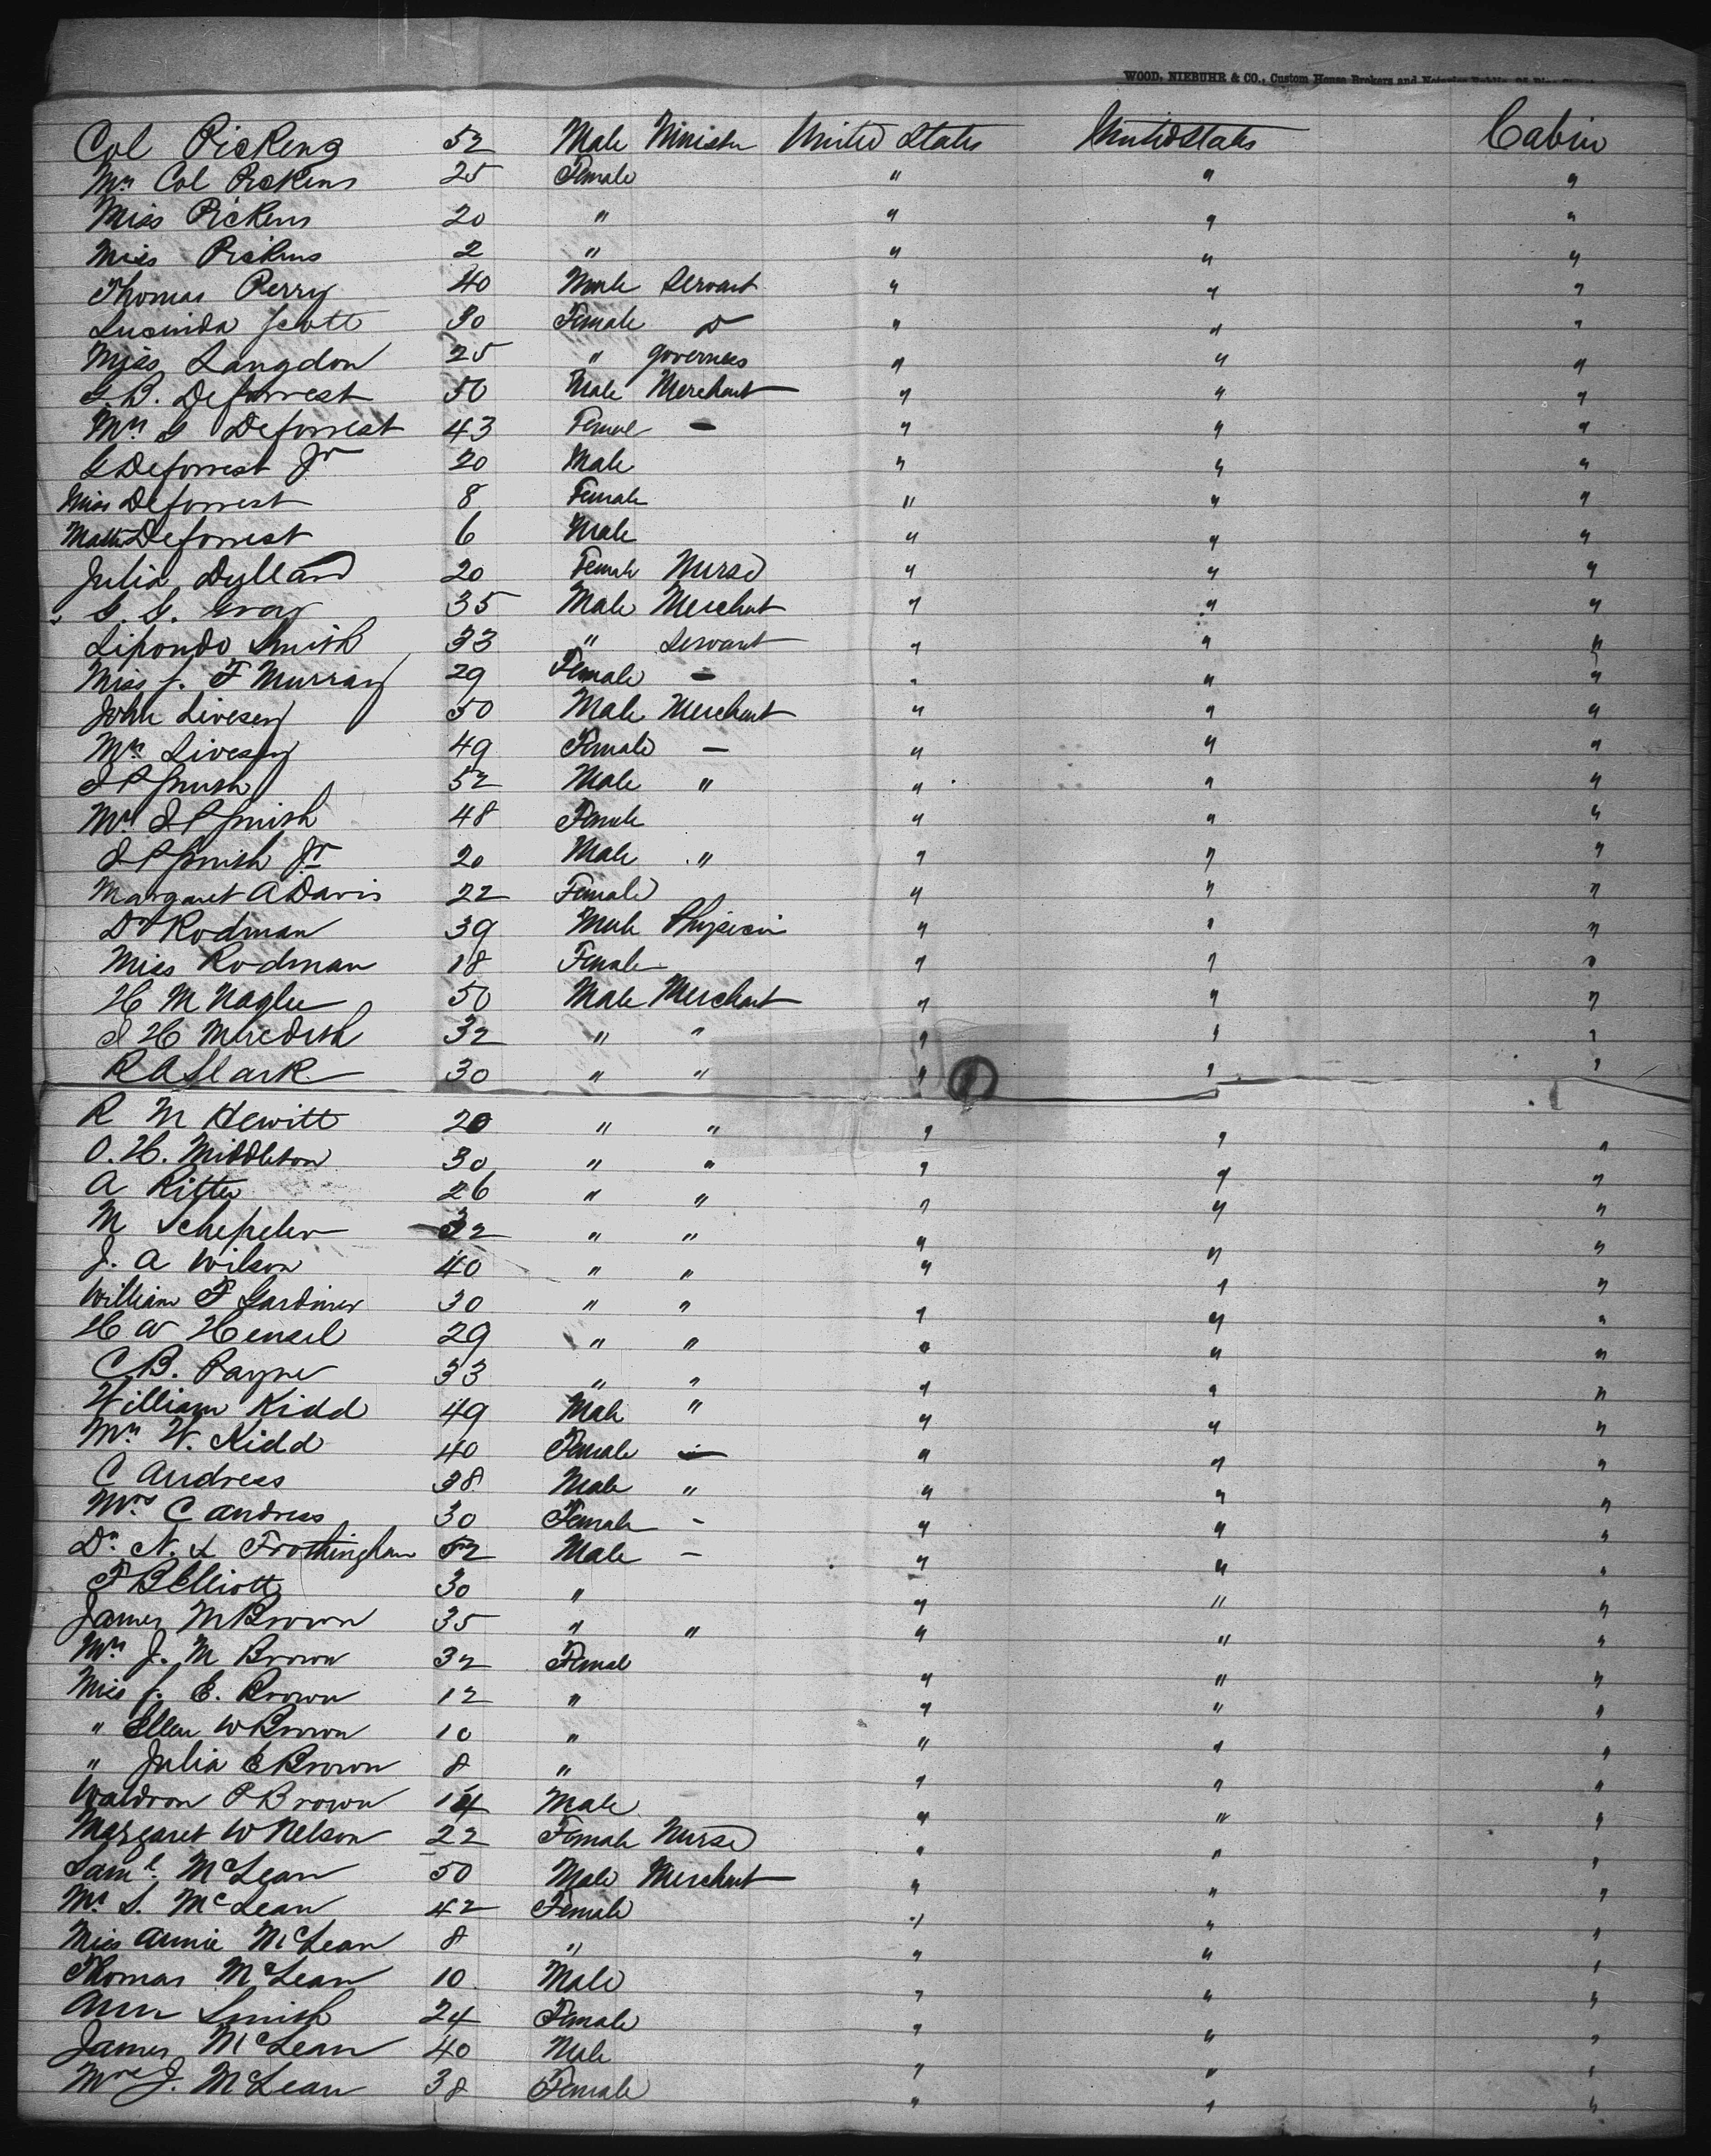 WOOD, NIEBUHR & CO., Custom House Brokers and Notaries Public,
Col Pickens 52 Male Minister United States United States Cabin
Mrs Col Pickens 25 Female " " "
Miss Pickens 20 " " " "
Miss Pickens 2 " " " "
Thomas Perry 40 Male Servant " " "
Lucinda Scott 30 Female Do " " "
Miss Langdon 25 " Governess " " "
G. B. Deforrest 50 Male Merchant " " "
Mrs G Deforrest 43 Female — " " "
G Deforrest Jr 20 Male " " "
Miss Deforrest 8 Female " " "
Master Deforrest 6 Male " " "
Julia Dylland 20 Female Nurse " " "
G. G. Gray 35 Male Merchant " " "
Lipondo Smith 33 " Servant " " "
Miss J. F Murray 29 Female — " " "
John Livesey 50 Male Merchant " " "
Mrs Livesey 49 Female — " " "
I P Smith 52 Male " " " "
Mrs I P Smith 48 Female " " "
I P Smith Jr 20 Male " " " "
Margaret A Davis 22 Female " " "
Dr Rodman 39 Male Physician " " "
Miss Rodman 18 Female " " "
H M Naglee 50 Male Merchant " " "
I H Meredith 32 " " " " "
R A Slark 30 " " " " "
1
R M Hewitt 20 " " " " "
O. H. Middleton 30 " " " " "
A Ritter 26 " " " " "
M Schepeler 32 " " " " "
J. A Wilson 40 " " " " "
William F Gardiner 30 " " " " "
H W Hensel 29 " " " " "
C B. Payne 33 " " " " "
William Kidd 49 Male " " " "
Mrs W. Kidd 40 Female — " " "
C Andress 38 Male " " " "
Mrs C Andress 30 Female - " " "
Dr N. L Frothingham 52 Male — " " "
F B Elliott 30 " " " "
James M Brown 35 " " " " "
Mrs J. M Brown 32 Femal " " "
Miss J. E. Brown 12 " " " "
" Ellen W Brown 10 " " " "
" Julia E Brown 8 " " " "
Waldron P Brown 14 Male " " "
Margaret W Nelson 22 Female Nurse " " "
Saml McLean 50 Male Merchant " " "
Mrs S. McLean 42 Female " " "
Miss Annie McLean 8 " " " "
Thomas McLean 10 Male " " "
Ann Smith 24 Female " " "
James McLean 40 Male " " "
Mrs J. McLean 38 Female " " "